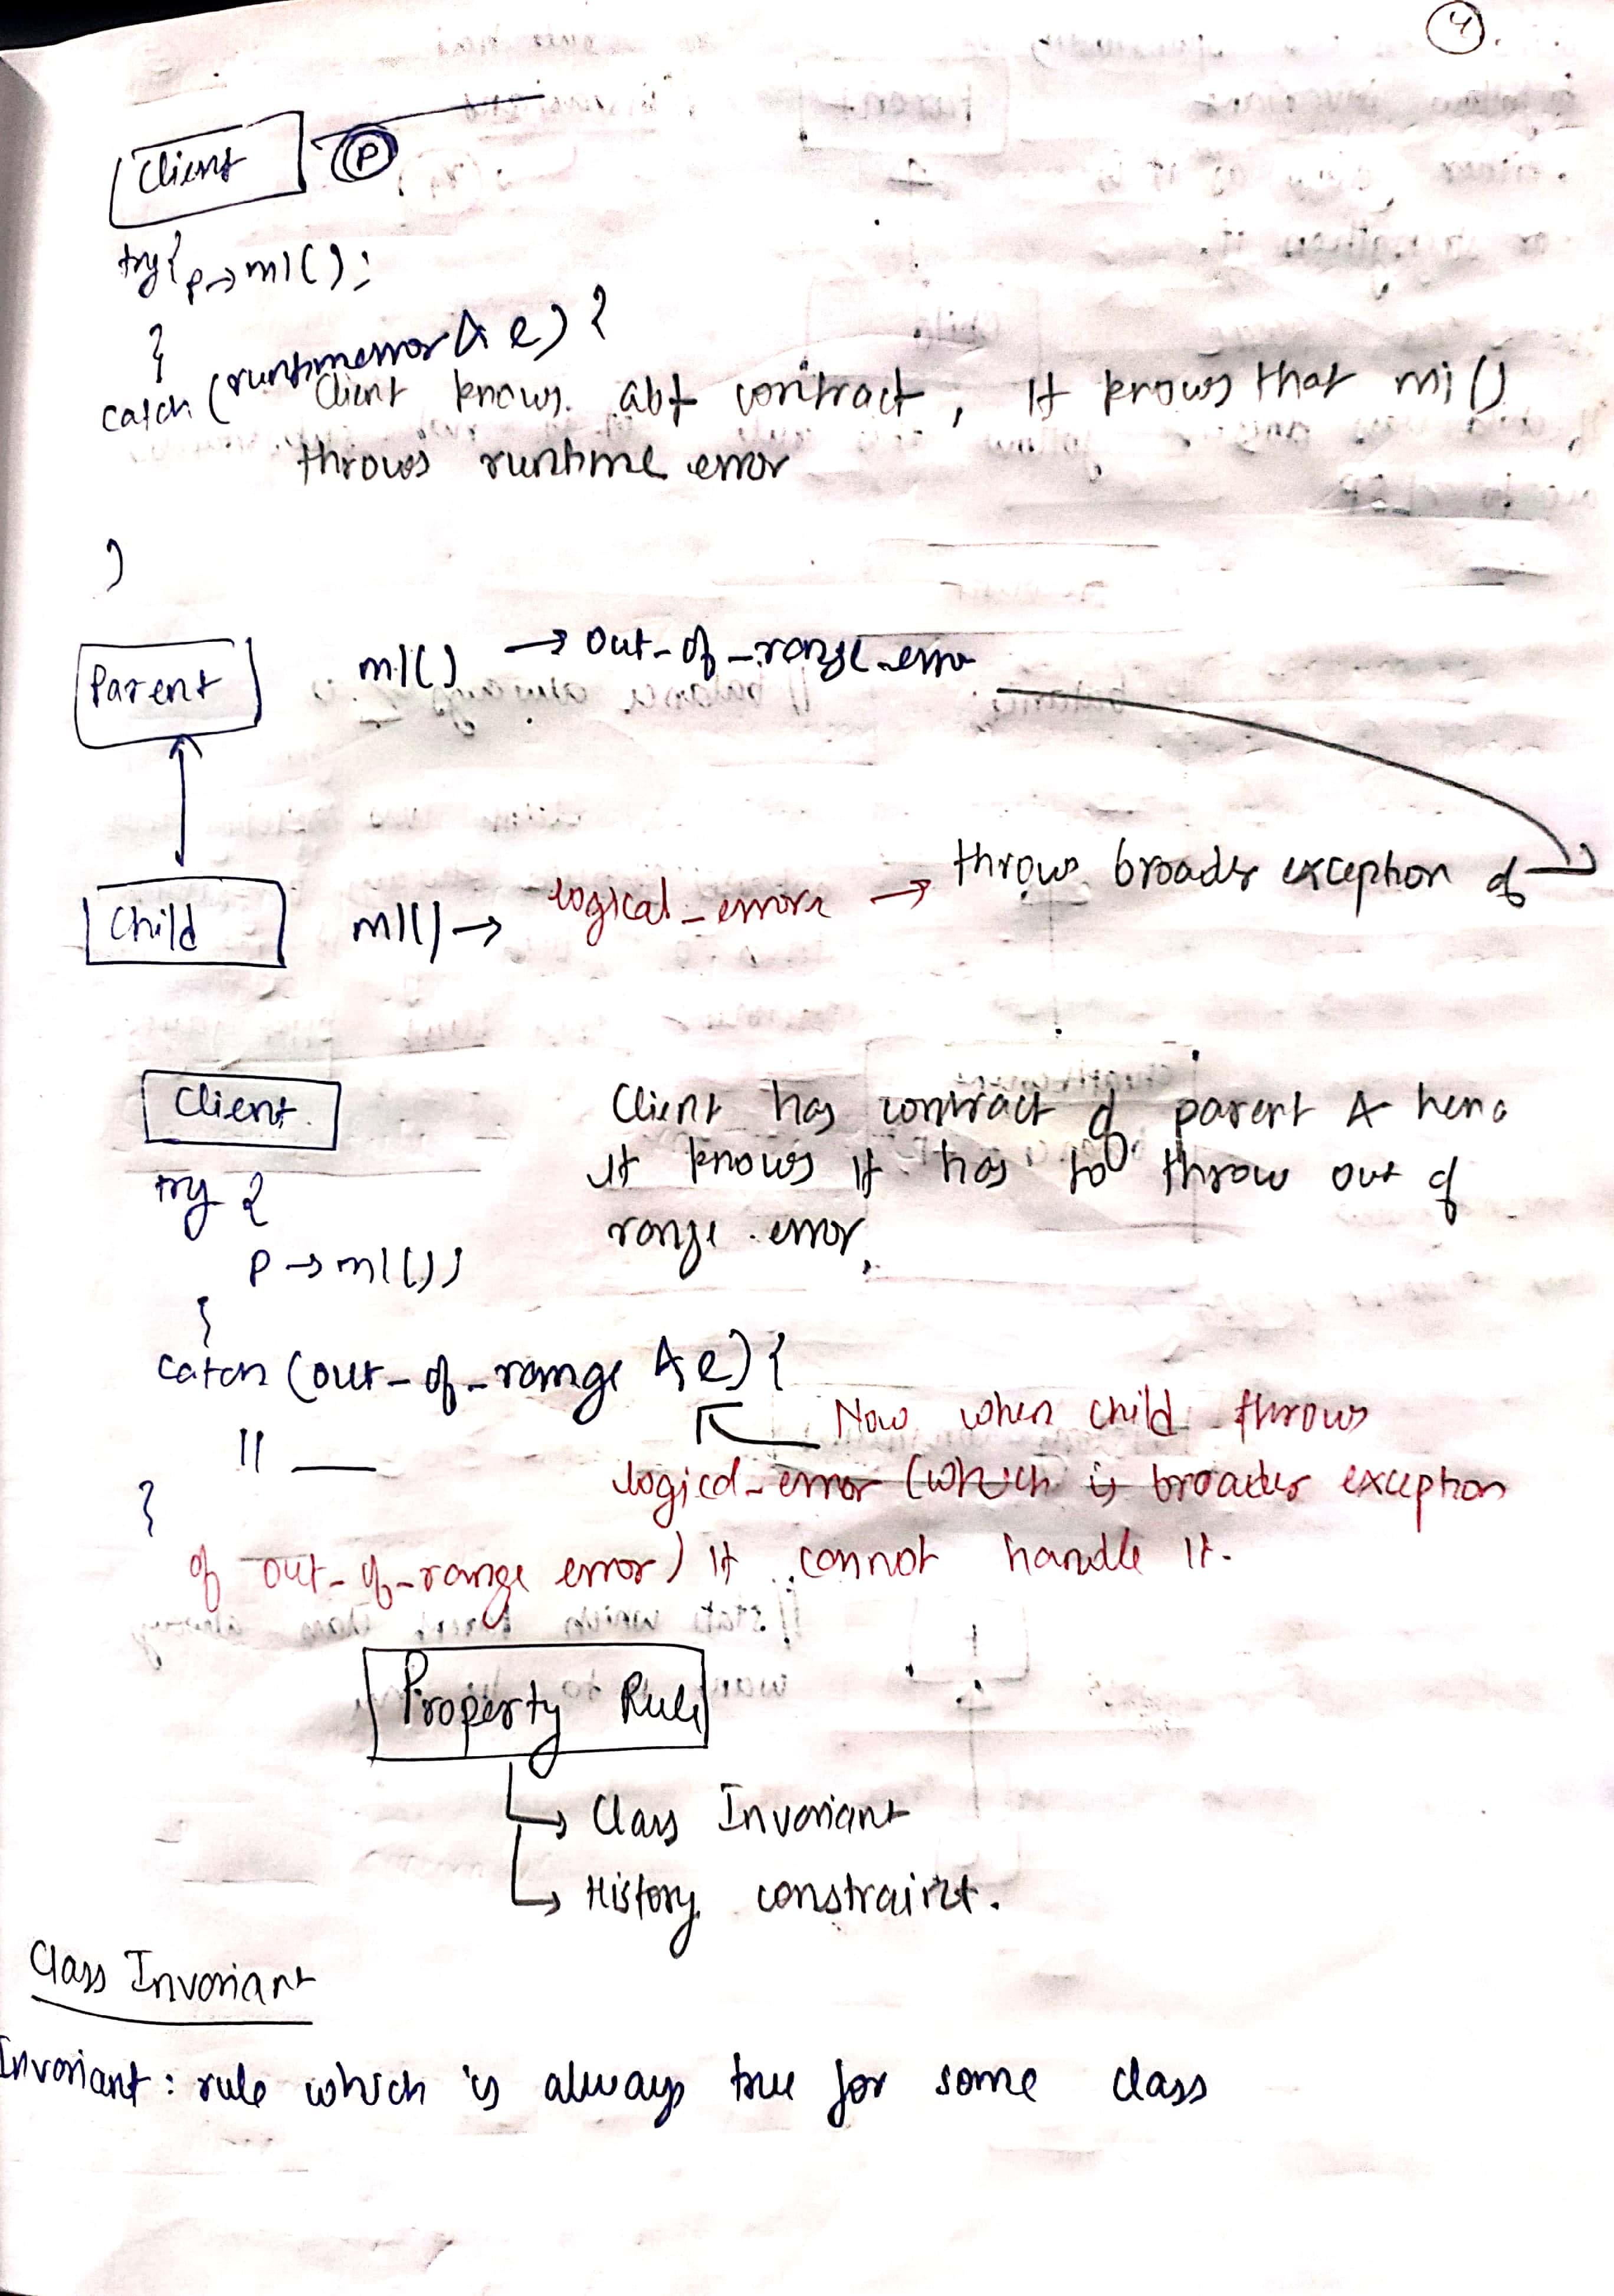 4
Client P
try{ p→m1();
}
catch (runtimeerror & e) {
Client knows abt contract, it knows that m1()
throws runtime error
}
Parent m1() → out-of-range error
Child m1() → logical-error → throws broader exception of
Client
Client has contract of parent & henc
it knows it has to throw out of
range error,
try {
p→m1();
}
catch (out-of-range & e) {
// __
Now when child throws
logical-error (which is broader exception
}
of out-of-range error) it cannot handle it.
Property Rule
→ Class Invariant
→ History constraint.
Class Invariant
Invariant : rule which is always true for some class